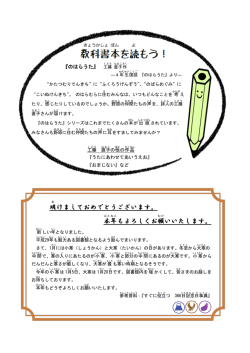 きょうかしょ ぼん よ
教科書本を読もう!
『のはらうた』 工藤 直子作
―4年生国語 『のはらうた』より―
“かたつむりでんきち” に “ふくろうげんぞう”、 “のぎらねのぶ” に
“こいぬけんきち”。 のはらむらに住むみんなは、いつもどんなことを 考え
たり、感じたりしているのでしょうか。野原の仲間たちの声を、詩人の工藤
直子さんが届けます。
『のはらうた』シリーズはこれまでたくさんの本が出 版されています。
みなさんも野原に住む仲間たちの声に耳をすましてみませんか?
工藤 直子の他の作品
『うたにあわせてあいうえお』
『おまじない』など
明けましておめでとうございます。
本年もよろしくお願いいたします。
新しい年となりました。
平成29年も魅力ある図書館となるよう励んでまいります。
さて、1月には小寒（しょうかん）と大寒（だいかん）の日があります。冬至から大寒の
中間で、寒の入りにあたるのが小寒、小寒と節分の中間にあるのが大寒です。小寒から
だんだんと寒さが厳しくなり、大寒が最も寒い時期となるそうです。
今年の小寒は1月5日、大寒は1月20日です。図書館内を暖かくして、皆さまのお越しを
お待ちしております。
本年もどうぞよろしくお願いいたします。
参考資料 『すぐに役立つ 366日記念日事典』